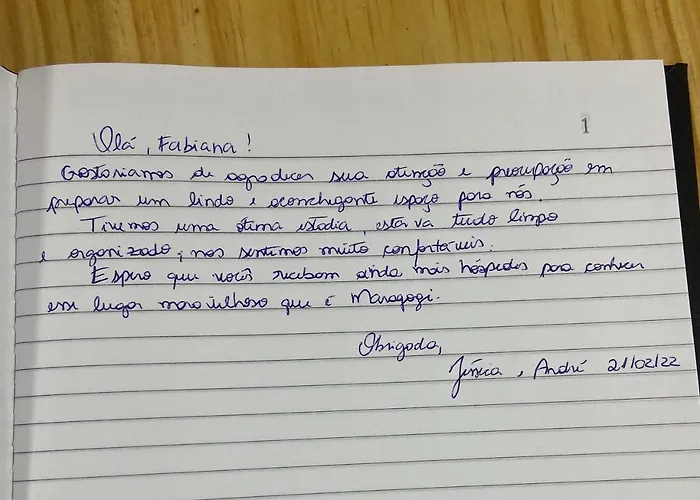 1
Olá, Fabiana!
Gostaríamos de agradecer sua atenção e preocupação em
preparar um lindo e aconchegante espaço para nós.
Tivemos uma ótima estadia, estava tudo limpo
e organizado; nos sentimos muito confortáveis.
Espero que vocês recebam ainda mais hóspedes para conhecer
esse lugar maravilhoso que é Maragogi.
Obrigada,
Jéssica, André 21/02/22